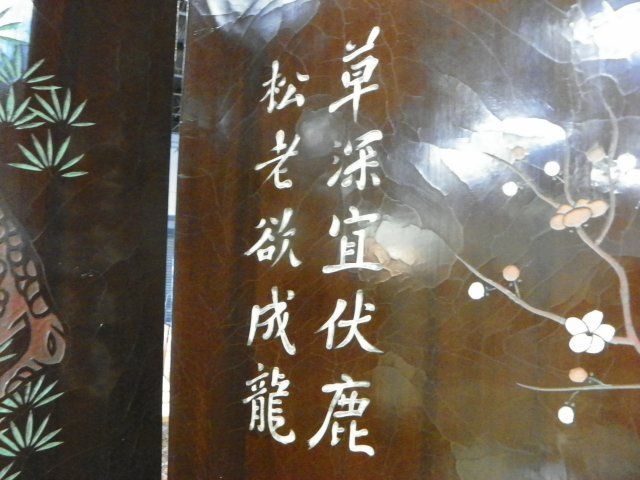 草深宜伏鹿
松老欲成龍